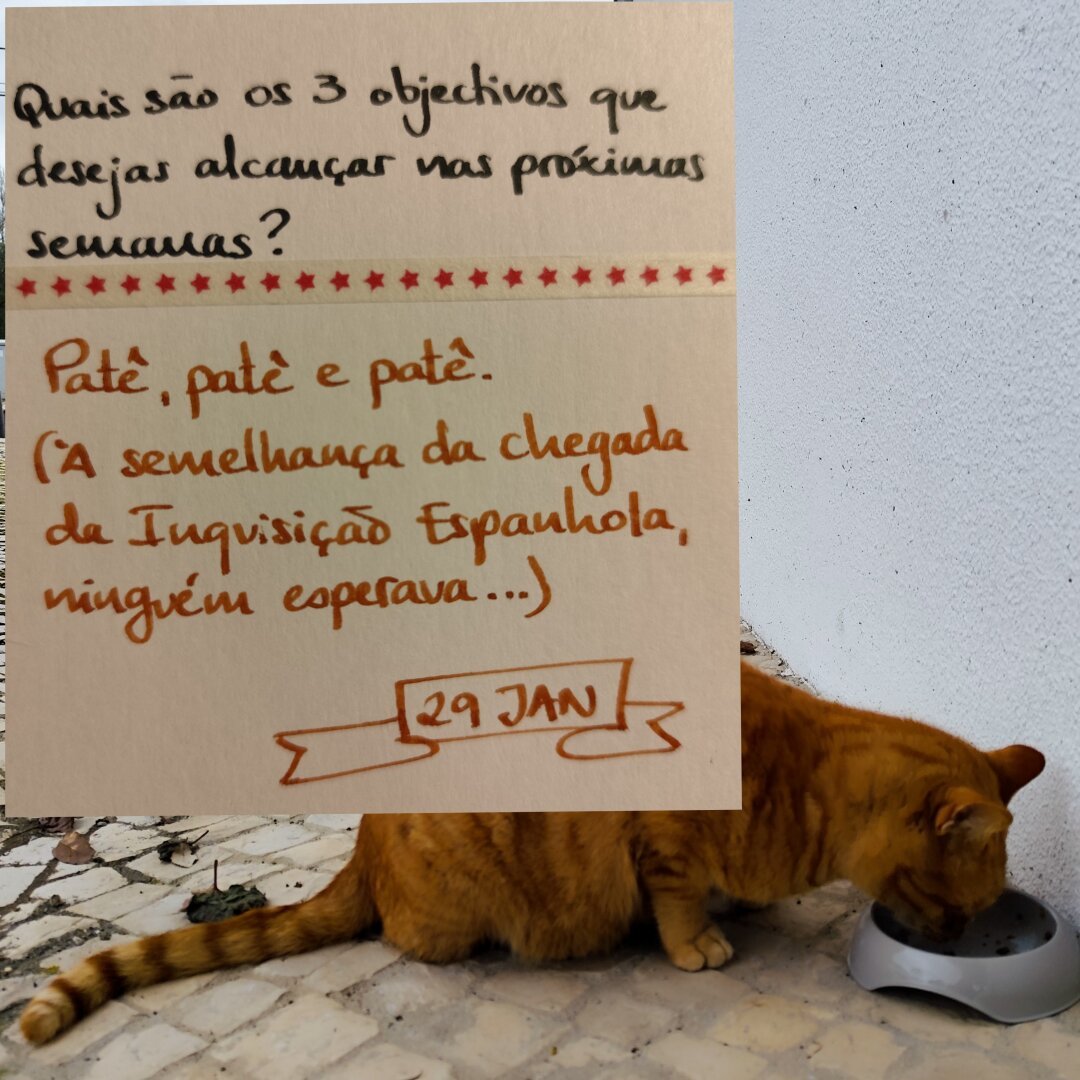 Quais são os 3 objectivos que
desejas alcançar nas próximas
semanas?
Patê, patê e patê.
(À semelhança da chegada
da Inquisição Espanhola,
ninguém esperava...)
29 JAN